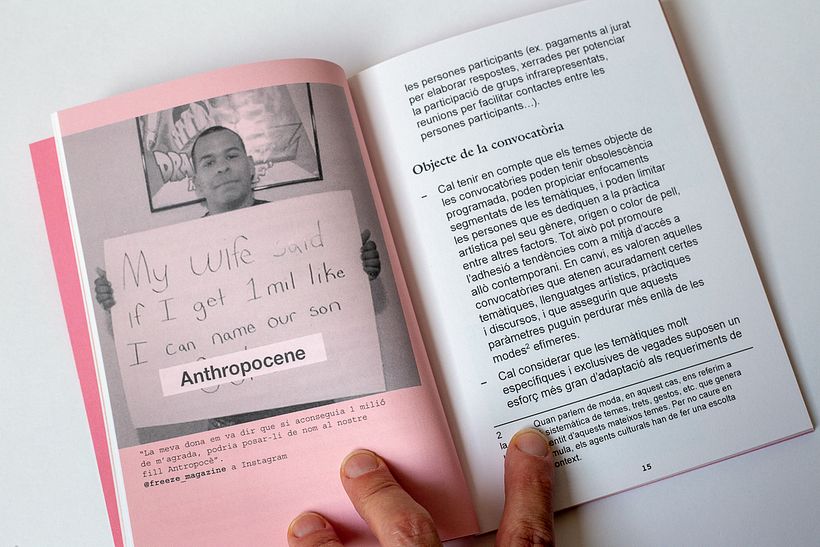 My wife said
if I get 1 mil like
I can name our son
Anthropocene
"La meva dona em va dir que si aconseguia 1 milió
de m'agrada, podria posar-li de nom al nostre
fill Antropocè".
@freeze_magazine a Instagram
les persones participants (ex. pagaments al jurat
per elaborar respostes, xerrades per potenciar
la participació de grups infrarepresentats,
reunions per facilitar contactes entre les
persones participants...).
Objecte de la convocatòria
– Cal tenir en compte que els temes objecte de
les convocatòries poden tenir obsolescència
programada, poden propiciar enfocaments
segmentats de les temàtiques, i poden limitar
les persones que es dediquen a la pràctica
artística pel seu gènere, origen o color de pell,
entre altres factors. Tot això pot promoure
l'adhesió a tendències com a mitjà d'accés a
allò contemporani. En canvi, es valoren aquelles
convocatòries que atenen acuradament certes
temàtiques, llenguatges artístics, pràctiques
i discursos, i que assegurin que aquests
paràmetres puguin perdurar més enllà de les
modes² efímeres.
– Cal considerar que les temàtiques molt
específiques i exclusives de vegades suposen un
esforç més gran d'adaptació als requeriments de
2 Quan parlem de moda, en aquest cas, ens referim a
la sistemàtica de temes, trets, gestos, etc. que genera
d'aquests mateixos temes. Per no caure en
els agents culturals han de fer una escolta
15